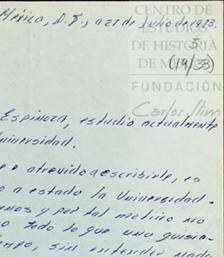 México, D.F., a 29 de Julio de 1973.
CENTRO DE
ESTUDIOS
DE HISTORIA
DE M
5
(19/33)
FUNDACIÓN
Carlos Slim
Espinoza, estudio actualmente
Universidad.
atrevido a escribirle, es
a estado la Universidad.
y por tal motivo no
todo lo que uno quisie-
sin entender nada